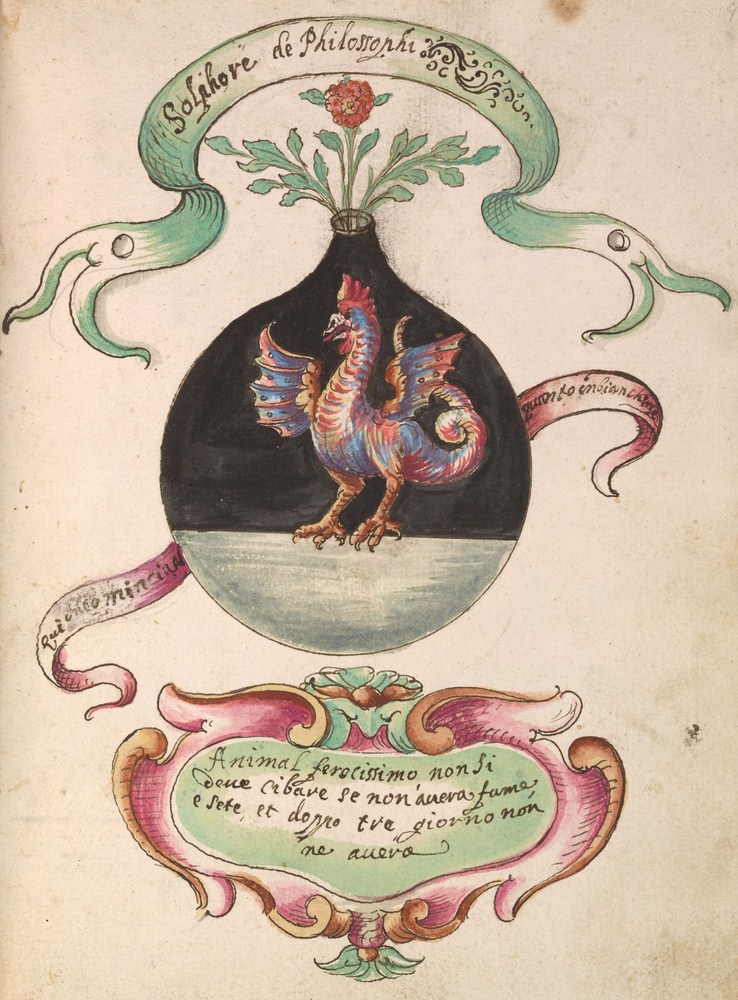 Solihore de Philossophi
quanto enbianchire
Qui incomincia
Animal ferocissimo non si
deue cibare se non auera fame,
e sete, et doppo tre giorno non
ne auera